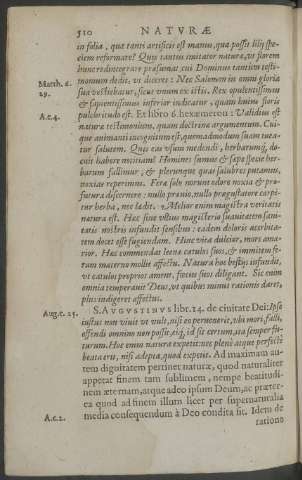 510 NATVRÆ
in folia, quæ tanti artificis est manus, quæ possit lilij speciem
reformare? Quis tantus imitator naturæ, vt florem
hunc redintegrare præsumat, cui Dominus tantum testimonium
dedit, vt diceret: Nec Salomon in omni gloria
Matth. 6. 29.
sua vestiebatur, sicut vnum ex istis. Rex opulentissimus
& sapientissimus inferior iudicatur, quàm huius floris
A.c.4.
pulchritudo est. Ex libro 6. hexæmeron: Validius est
naturæ testimonium, quàm doctrinæ argumentum. Cuique
animanti incognitum est, quemadmodum suam tueatur
salutem. Quis eas vsum medendi, herbarumq́;
cuit habere notitiam? Homines sumus & sæpe specie herbarum
fallimur, & plerunque quas salubres putamus,
noxias reperimus. Feræ solo norunt odore noxia & profutura
discernere: nullo præuio, nullo prægustatore carpitur
herba, nec lædit. Melior enim magistra veritatis
natura est. Hæc sine vllius magisterio suauitatem sanitatis
nostris infundit sensibus: eadem doloris acerbitatem
docet esse fugiendam. Hinc vita dulcior, mors amarior.
Hæc commendat leænæ catulos suos, & immitem feram
materno mollit affectu. Natura hoc bestijs infundit,
vt catulos proprios ament, fœtus suos diligant. Sic enim
omnia temperauit Deus, vt quibus minus rationis daret,
plus indigeret affectus.
Aug.c. 25.
S. AVGVSTINVS libr. 14. de ciuitate Dei: Ipse
iustus non viuit vt vult, nisi eò peruenerit, vbi mori, falli,
offendi omnino non possit, eiq́; id sit certum, ita semper futurum.
Hoc enim natura expetit: nec plenè atque perfectè
beata erit, nisi adepta, quod expetit. Ad maximam autem
dignitatem pertinet naturæ, quod naturaliter
appetat finem tam sublimem, nempe beatitudinem
æternam, atque adeo ipsum Deum, ac præterea
quod ad finem illum licet per supernaturalia
A.c.2.
media consequendum à Deo condita sit. Idem de
ratione